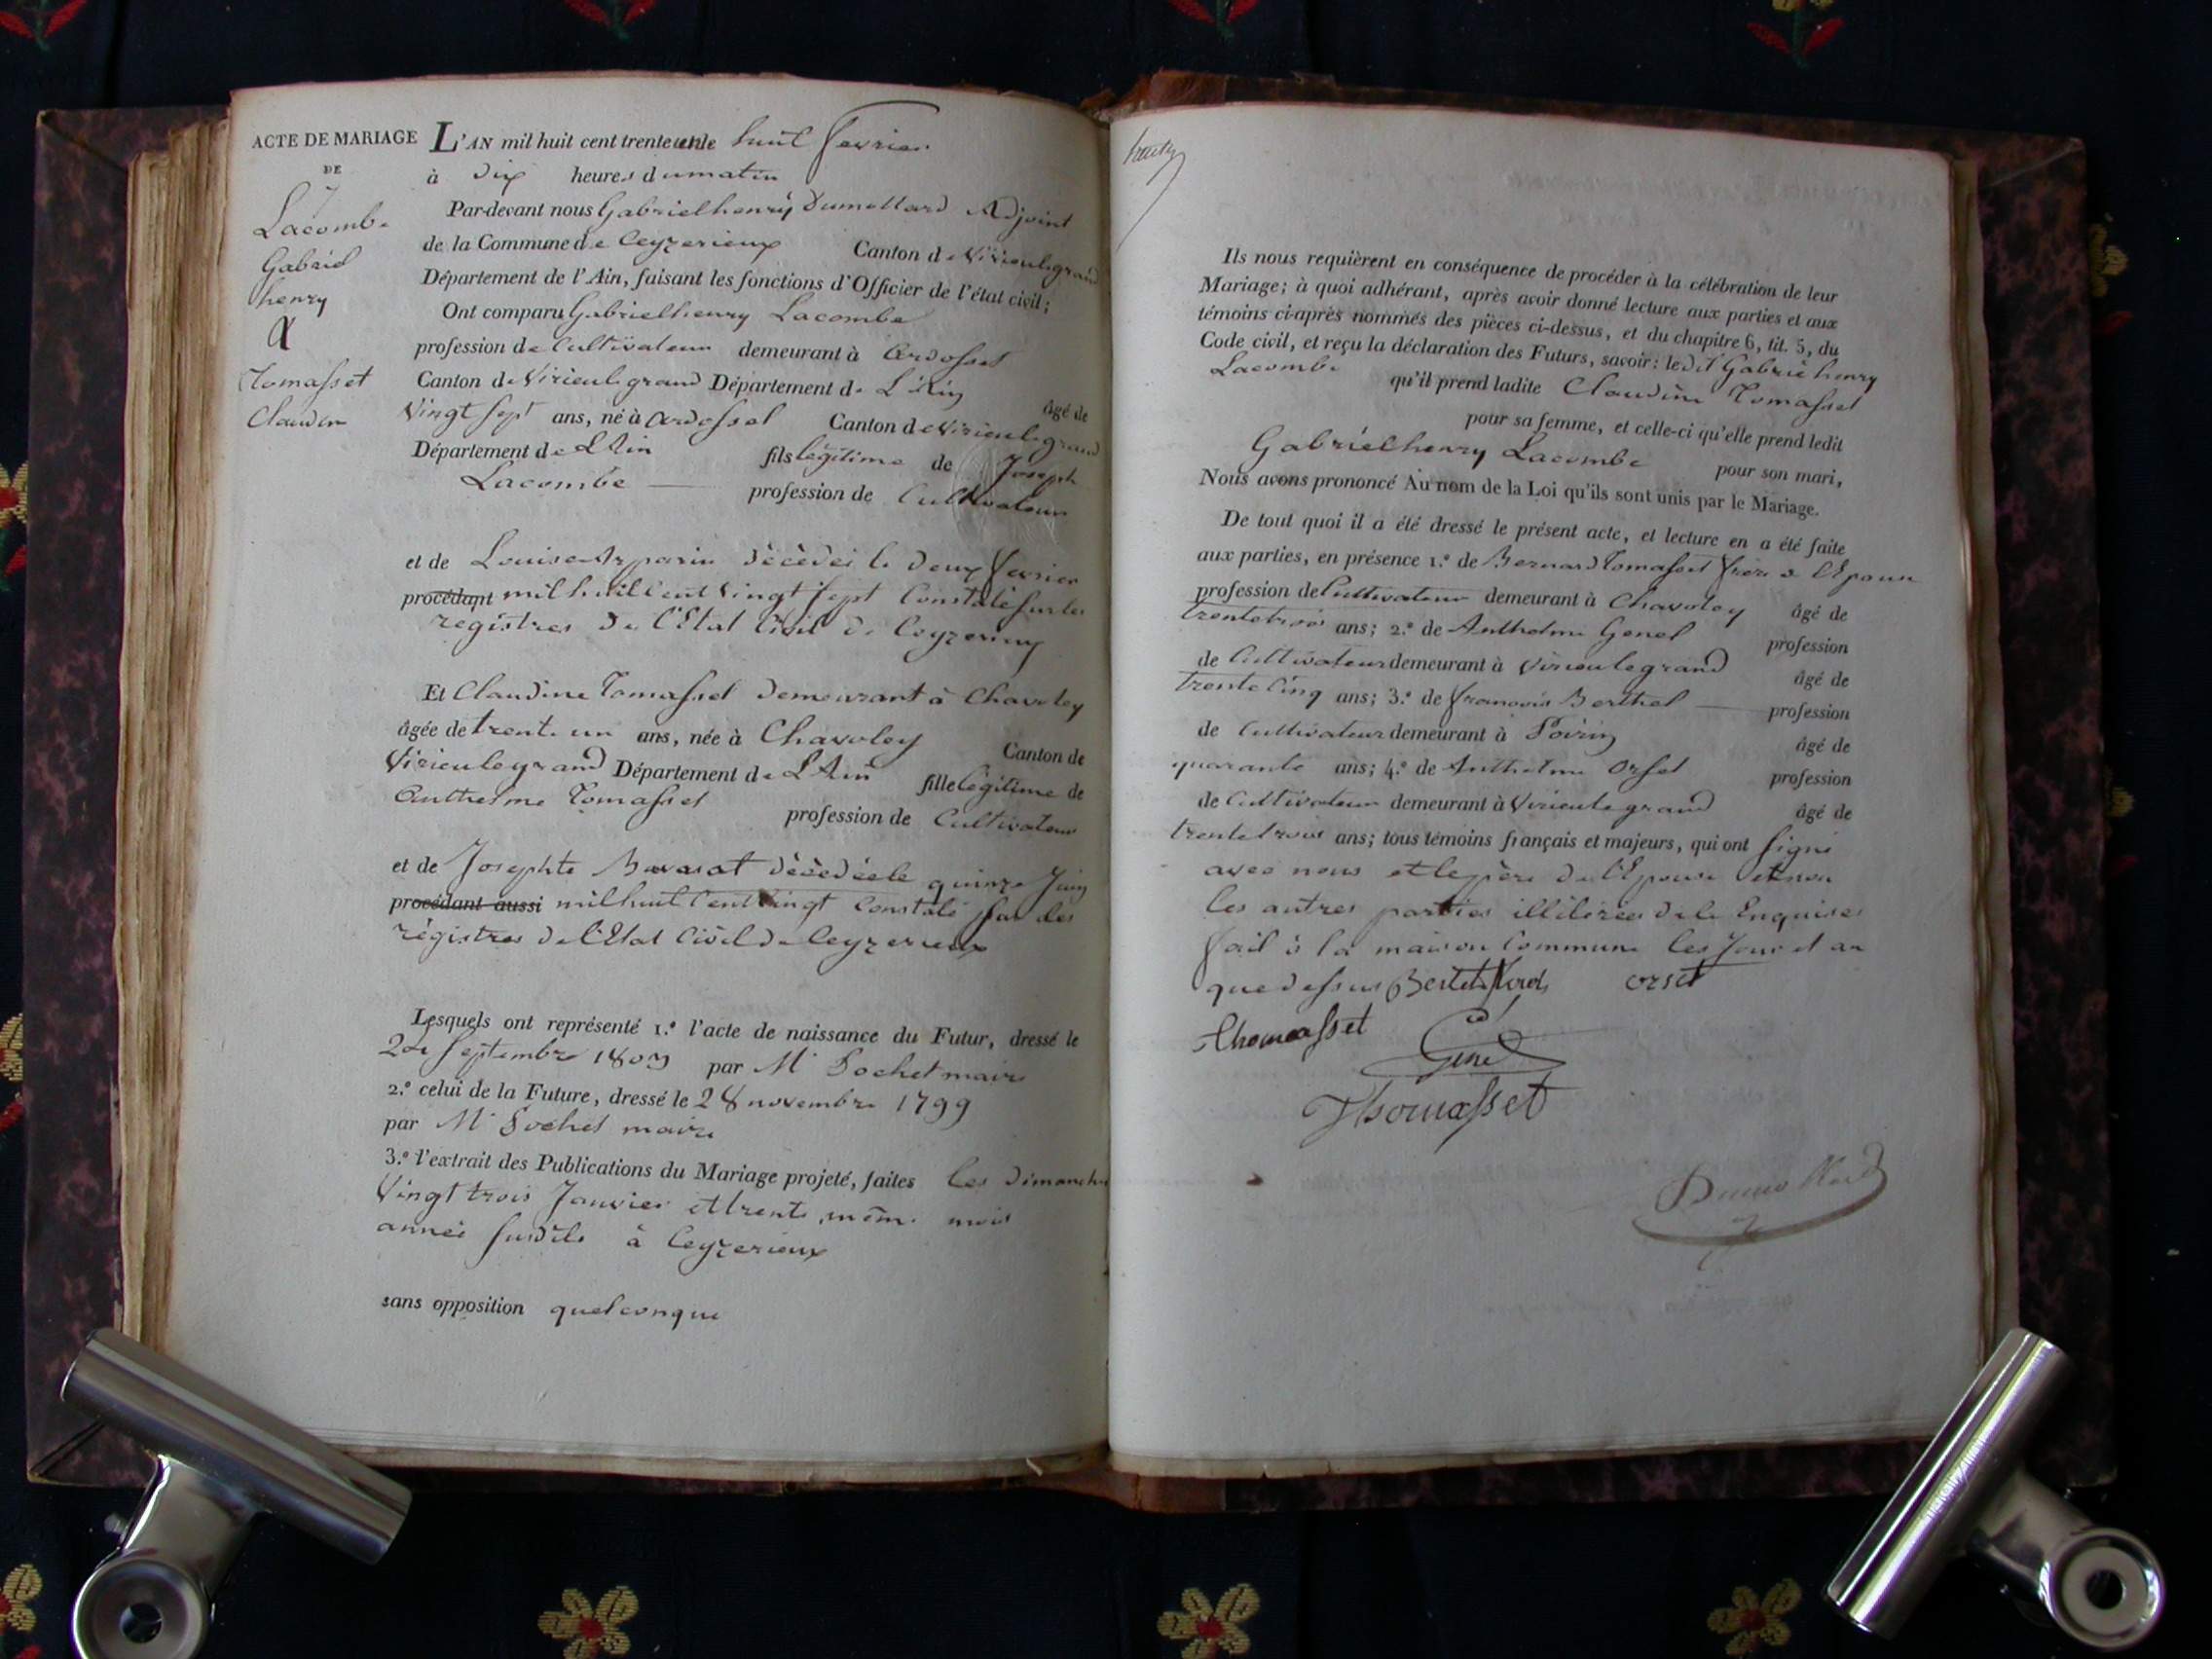 ACTE DE MARIAGE
DE
7
Lacombe
Gabriel
henry
&
Tomasset
Claudine
L'AN mil huit cent trente un le huit fevrier
à Dix heures du matin
Par-devant nous Gabriel henry Dumollard Adjoint
de la Commune de Ceyzerieux Canton de Virieu le grand
Département de l'Ain, faisant les fonctions d'Officier de l'état civil;
Ont comparu Gabriel henry Lacombe
profession de Cultivateur demeurant à Ardosset
Canton de Virieu le grand Département de L'Ain âgé de
Vingt Sept ans, né à Ardosset Canton de Virieu le grand
Département de L'Ain fils légitime de Joseph
Lacombe profession de Cultivateur
et de Louise décédée le Deux fevrier
procédant mil huit Cent Vingt Sept Constaté Sur les
registres de l'Etat Civil de Ceyzerieux
Et Claudine Tomasset demeurant à Chavoley
âgée de trente un ans, née à Chavoley Canton de
Virieu le grand Département de L'Ain fille légitime de
Anthelme Tomasset profession de Cultivateur
et de Josephte décédée le quinze Juin
procédant aussi mil huit Cent Vingt Constaté par les
régistres de l'Etat Civil de Ceyzerieux
Lesquels ont représenté 1.º l'acte de naissance du Futur, dressé le
Septembre 1803 par Mr Pochet maire
2.º celui de la Future, dressé le 28 novembre 1799
par Mr Pochet maire
3.º l'extrait des Publications du Mariage projeté, faites les Dimanches
Vingt trois Janvier et trente même mois
année Susdite à Ceyzerieux
sans opposition quelconque
Ils nous requièrent en conséquence de procéder à la célébration de leur
Mariage; à quoi adhérant, après avoir donné lecture aux parties et aux
témoins ci-après nommés des pièces ci-dessus, et du chapitre 6, tit. 5, du
Code civil, et reçu la déclaration des Futurs, savoir: ledit Gabriel henry
Lacombe qu'il prend ladite Claudine Tomasset
pour sa femme, et celle-ci qu'elle prend ledit
Gabriel henry Lacombe pour son mari,
Nous avons prononcé Au nom de la Loi qu'ils sont unis par le Mariage.
De tout quoi il a été dressé le présent acte, et lecture en a été faite
aux parties, en présence 1.º de Bernard Tomasset frère de l'Epouse
profession de Cultivateur demeurant à Chavoley âgé de
trente trois ans; 2.º de Anthelme Genet profession
de Cultivateur demeurant à Virieu le grand âgé de
trente Cinq ans; 3.º de françois Berthet profession
de Cultivateur demeurant à Poirin âgé de
quarante ans; 4.º de Anthelme Orset profession
de Cultivateur demeurant à Virieu le grand âgé de
trente trois ans; tous témoins français et majeurs, qui ont Signé
avec nous et le père de l'Epouse et non
les autres parties illitérées de ce Enquises
fait à la maison Commune les Jour et an
que dessus Bertet orset
thomasset
Genet
Thomasset
Dumollard